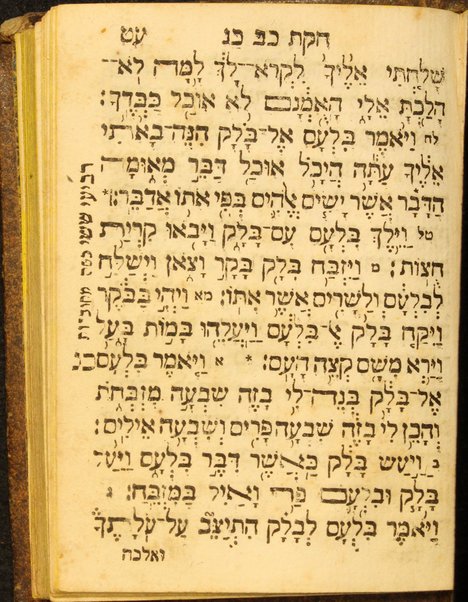 חקת כב כג עט
שָׁלַחְתִּי אֵלֶיךָ לִקְרֹא־לָךְ לָמָּה לֹא־
הָלַכְתָּ אֵלָי הַאֻמְנָם לֹא אוּכַל כַּבְּדֶךָ׃
לח וַיֹּאמֶר בִּלְעָם אֶל־בָּלָק הִנֵּה־בָאתִי
אֵלֶיךָ עַתָּה הֲיָכֹל אוּכַל דַּבֵּר מְאוּמָה
הַדָּבָר אֲשֶׁר יָשִׂים אֱלֹהִים בְּפִי אֹתוֹ אֲדַבֵּר׃ *
טל וַיֵּלֶךְ בִּלְעָם עִם־בָּלָק וַיָּבֹאוּ קִרְיַת
חֻצוֹת׃ מ וַיִּזְבַּח בָּלָק בָּקָר וָצֹאן וַיְשַׁלַּח
לְבִלְעָם וְלַשָּׂרִים אֲשֶׁר אִתּוֹ׃ מא וַיְהִי בַבֹּקֶר
וַיִּקַּח בָּלָק אֶ־בִּלְעָם וַיַּעֲלֵהוּ בָּמוֹת בָּעַל
וַיַּרְא מִשָּׁם קְצֵה הָעָם׃ * א וַיֹּאמֶר בִּלְעָם כג
אֶל־בָּלָק בְּנֵה־לִי בָזֶה שִׁבְעָה מִזְבְּחֹת
וְהָכֵן לִי בָּזֶה שִׁבְעָה פָרִים וְשִׁבְעָה אֵילִים׃
ב וַיַּעַשׂ בָּלָק כַּאֲשֶׁר דִּבֶּר בִּלְעָם וַיַּעַל
בָּלָק וּבִלְעָם פָּר וָאַיִל בַּמִּזְבֵּחַ׃ ג
וַיֹּאמֶר בִּלְעָם לְבָלָק הִתְיַצֵּב עַל־עֹלָתֶךָ
ואלכה
רביעי ששי מחוברות